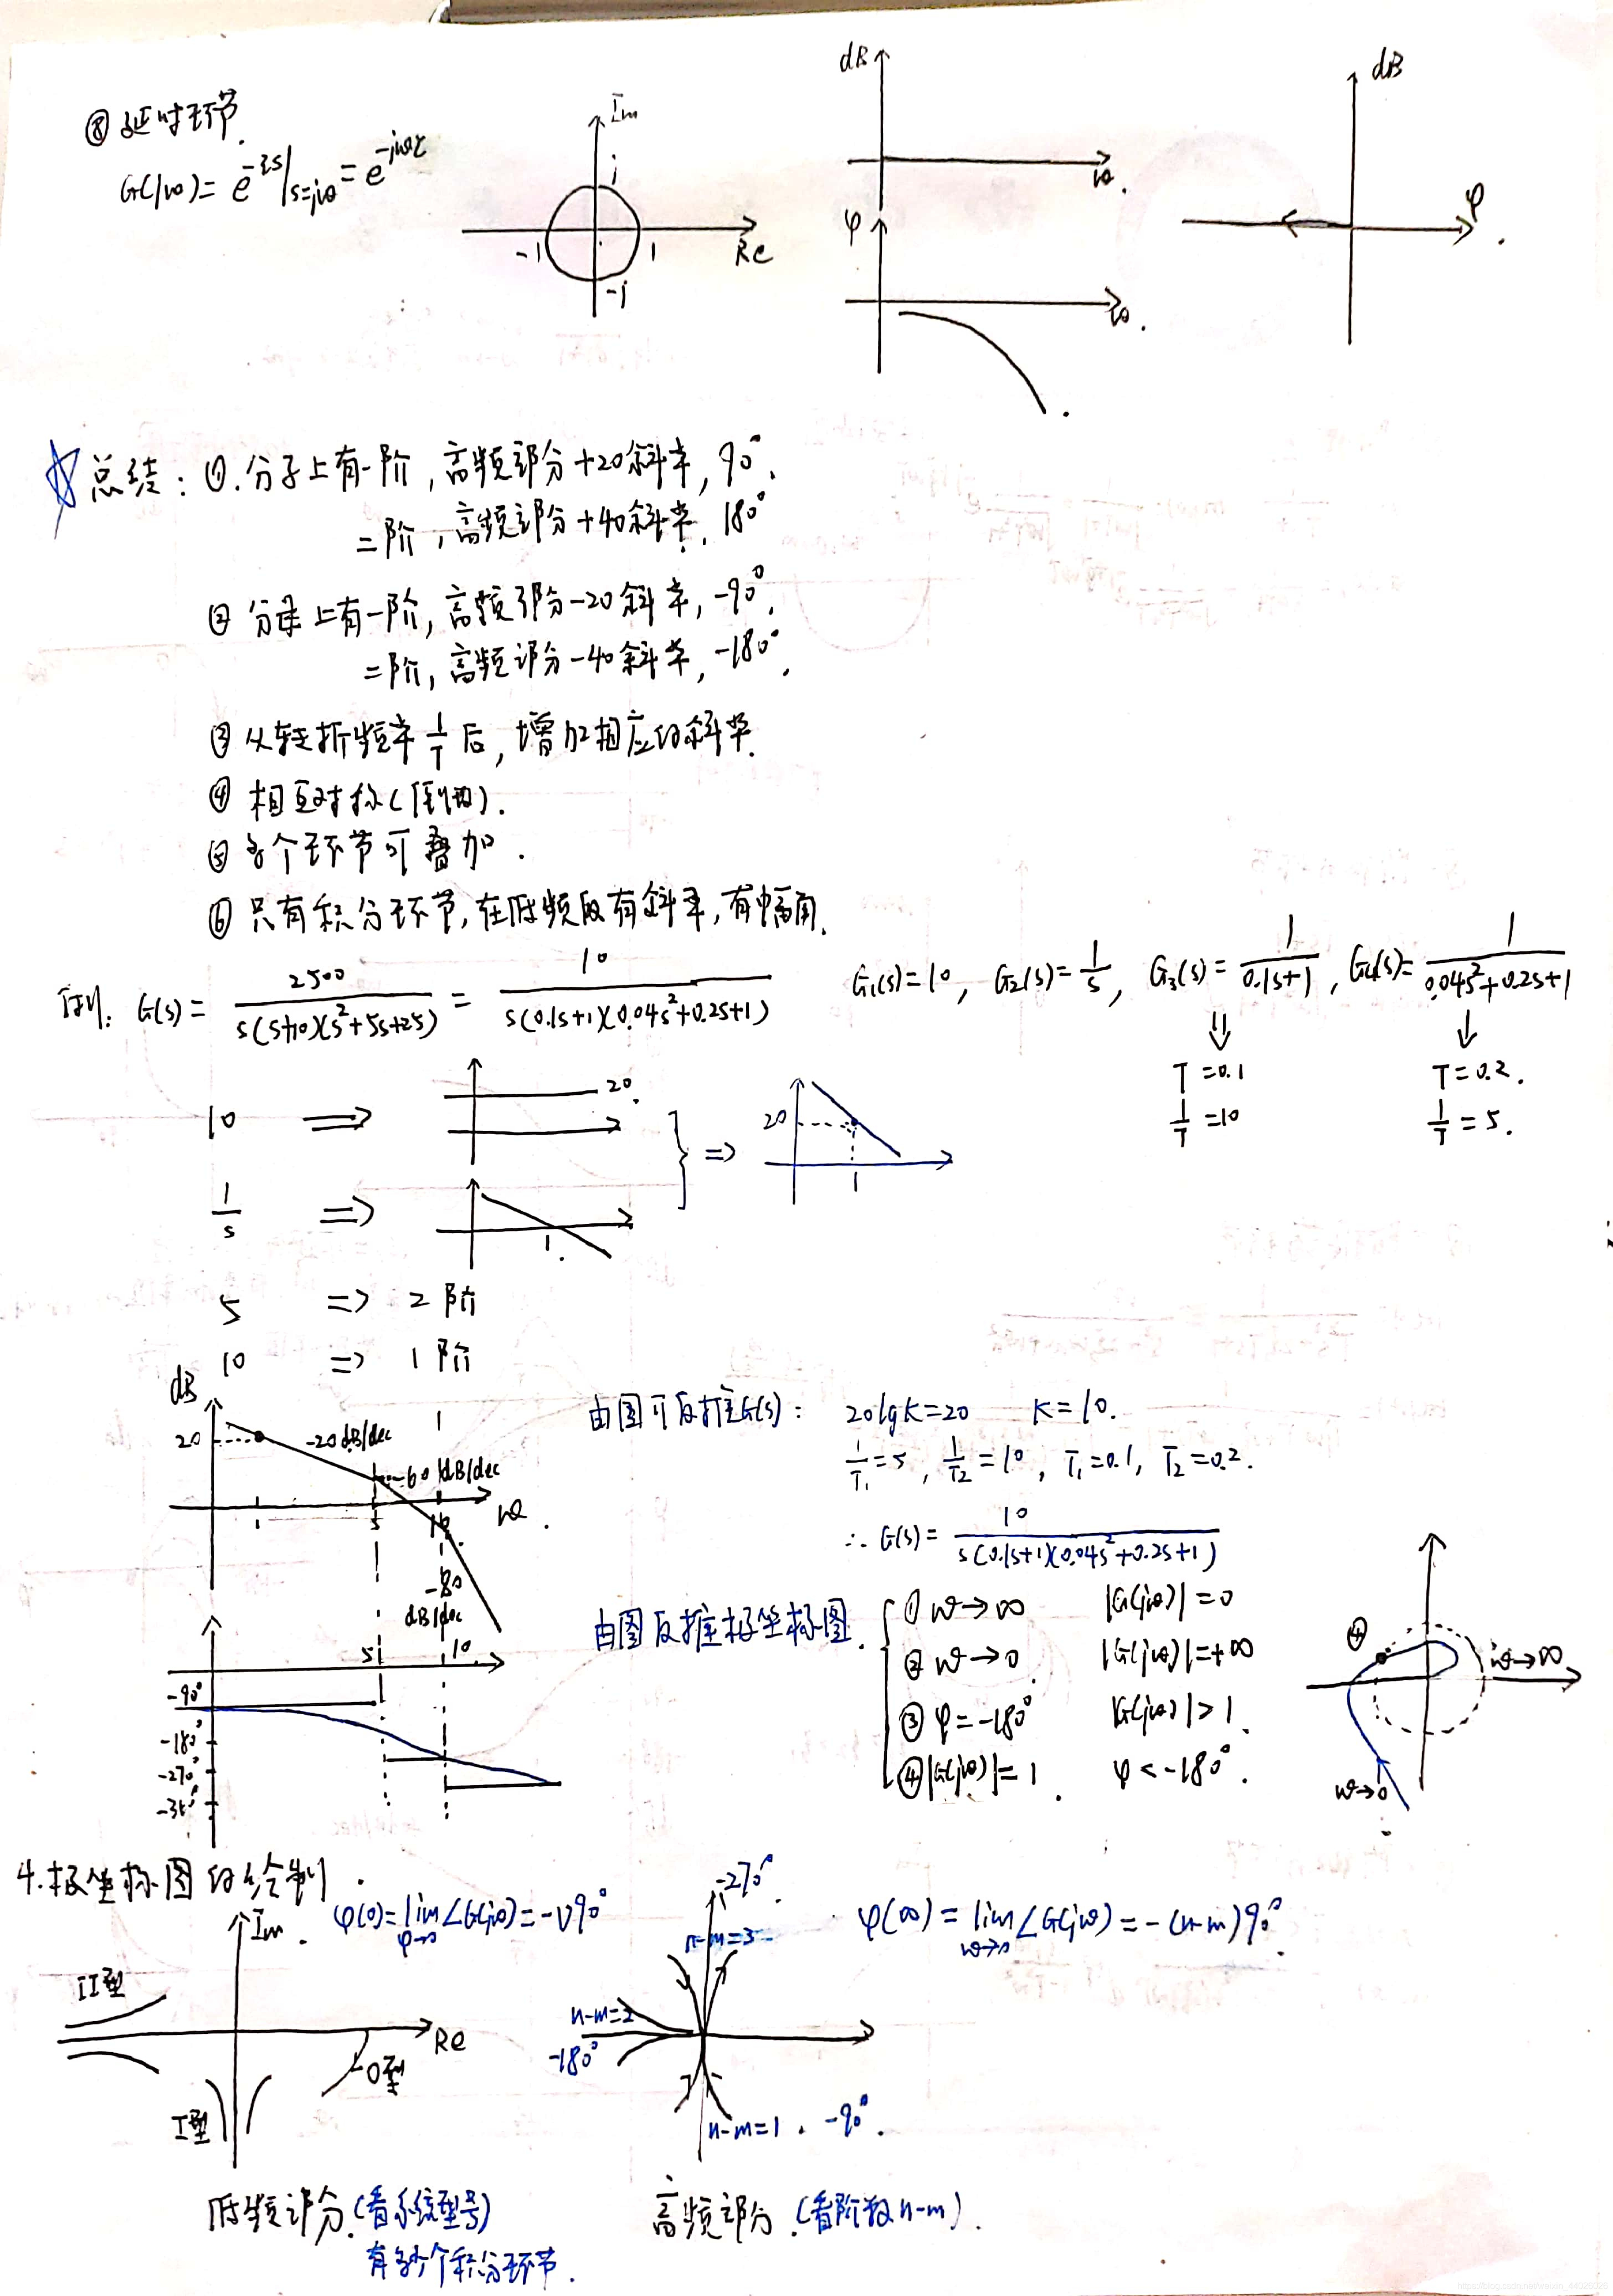 ⑧ 延时环节.
G(jω)= e^{-τs}|_{s=jω} = e^{-jωτ}
Im
j
-1
1
Re
-j
dB
ω.
φ
ω.
dB
φ
总结: ①.分子上有一阶,高频部分+20斜率,90°.
二阶,高频部分+40斜率,180°
② 分母上有一阶,高频部分-20斜率,-90°.
二阶,高频部分-40斜率,-180°.
③ 从转折频率 1/T 后,增加相应的斜率.
④ 相互对称(倒数).
⑤ 各个环节可叠加.
⑥ 只有积分环节,在低频段有斜率,有幅角.
例: G(s)= 2500/(s(s+10)(s²+5s+25)) = 10/(s(0.1s+1)(0.04s²+0.2s+1))
G₁(s)=10, G₂(s)=1/s, G₃(s)=1/(0.1s+1), G₄(s)=1/(0.04s²+0.2s+1)
⇓ ↓
T=0.1 T=0.2.
1/T=10 1/T=5.
10 ⇒ 20.
} ⇒ 20 1
1/s ⇒ 1.
5 ⇒ 2阶
10 ⇒ 1阶
dB
20
-20dB/dec
-60dB/dec
1 5 10
ω.
-80
dB/dec
5 10
-90°
-180°
-270°
由图可反推G(s): 20lgK=20 K=10.
1/T₁=5, 1/T₂=10, T₁=0.1, T₂=0.2.
∴ G(s)= 10/(s(0.1s+1)(0.04s²+0.2s+1))
由图反推极坐标图.
① ω→∞ |G(jω)|=0
② ω→0 |G(jω)|=+∞
③ φ=-180° |G(jω)|>1.
④ |G(jω)|=1 φ<-180°.
④
ω→∞
ω→0
4.极坐标图的绘制.
φ(0)=lim_{φ→0}∠G(jω)=-ν90°
φ(∞)=lim_{ω→∞}∠G(jω)=-(n-m)90°.
Im.
II型
Re
0型
I型
-270°.
n-m=3
n-m=2
-180°
n-m=1. -90°.
低频部分.(看系统型号)
有多少个积分环节.
高频部分.(看阶数n-m).